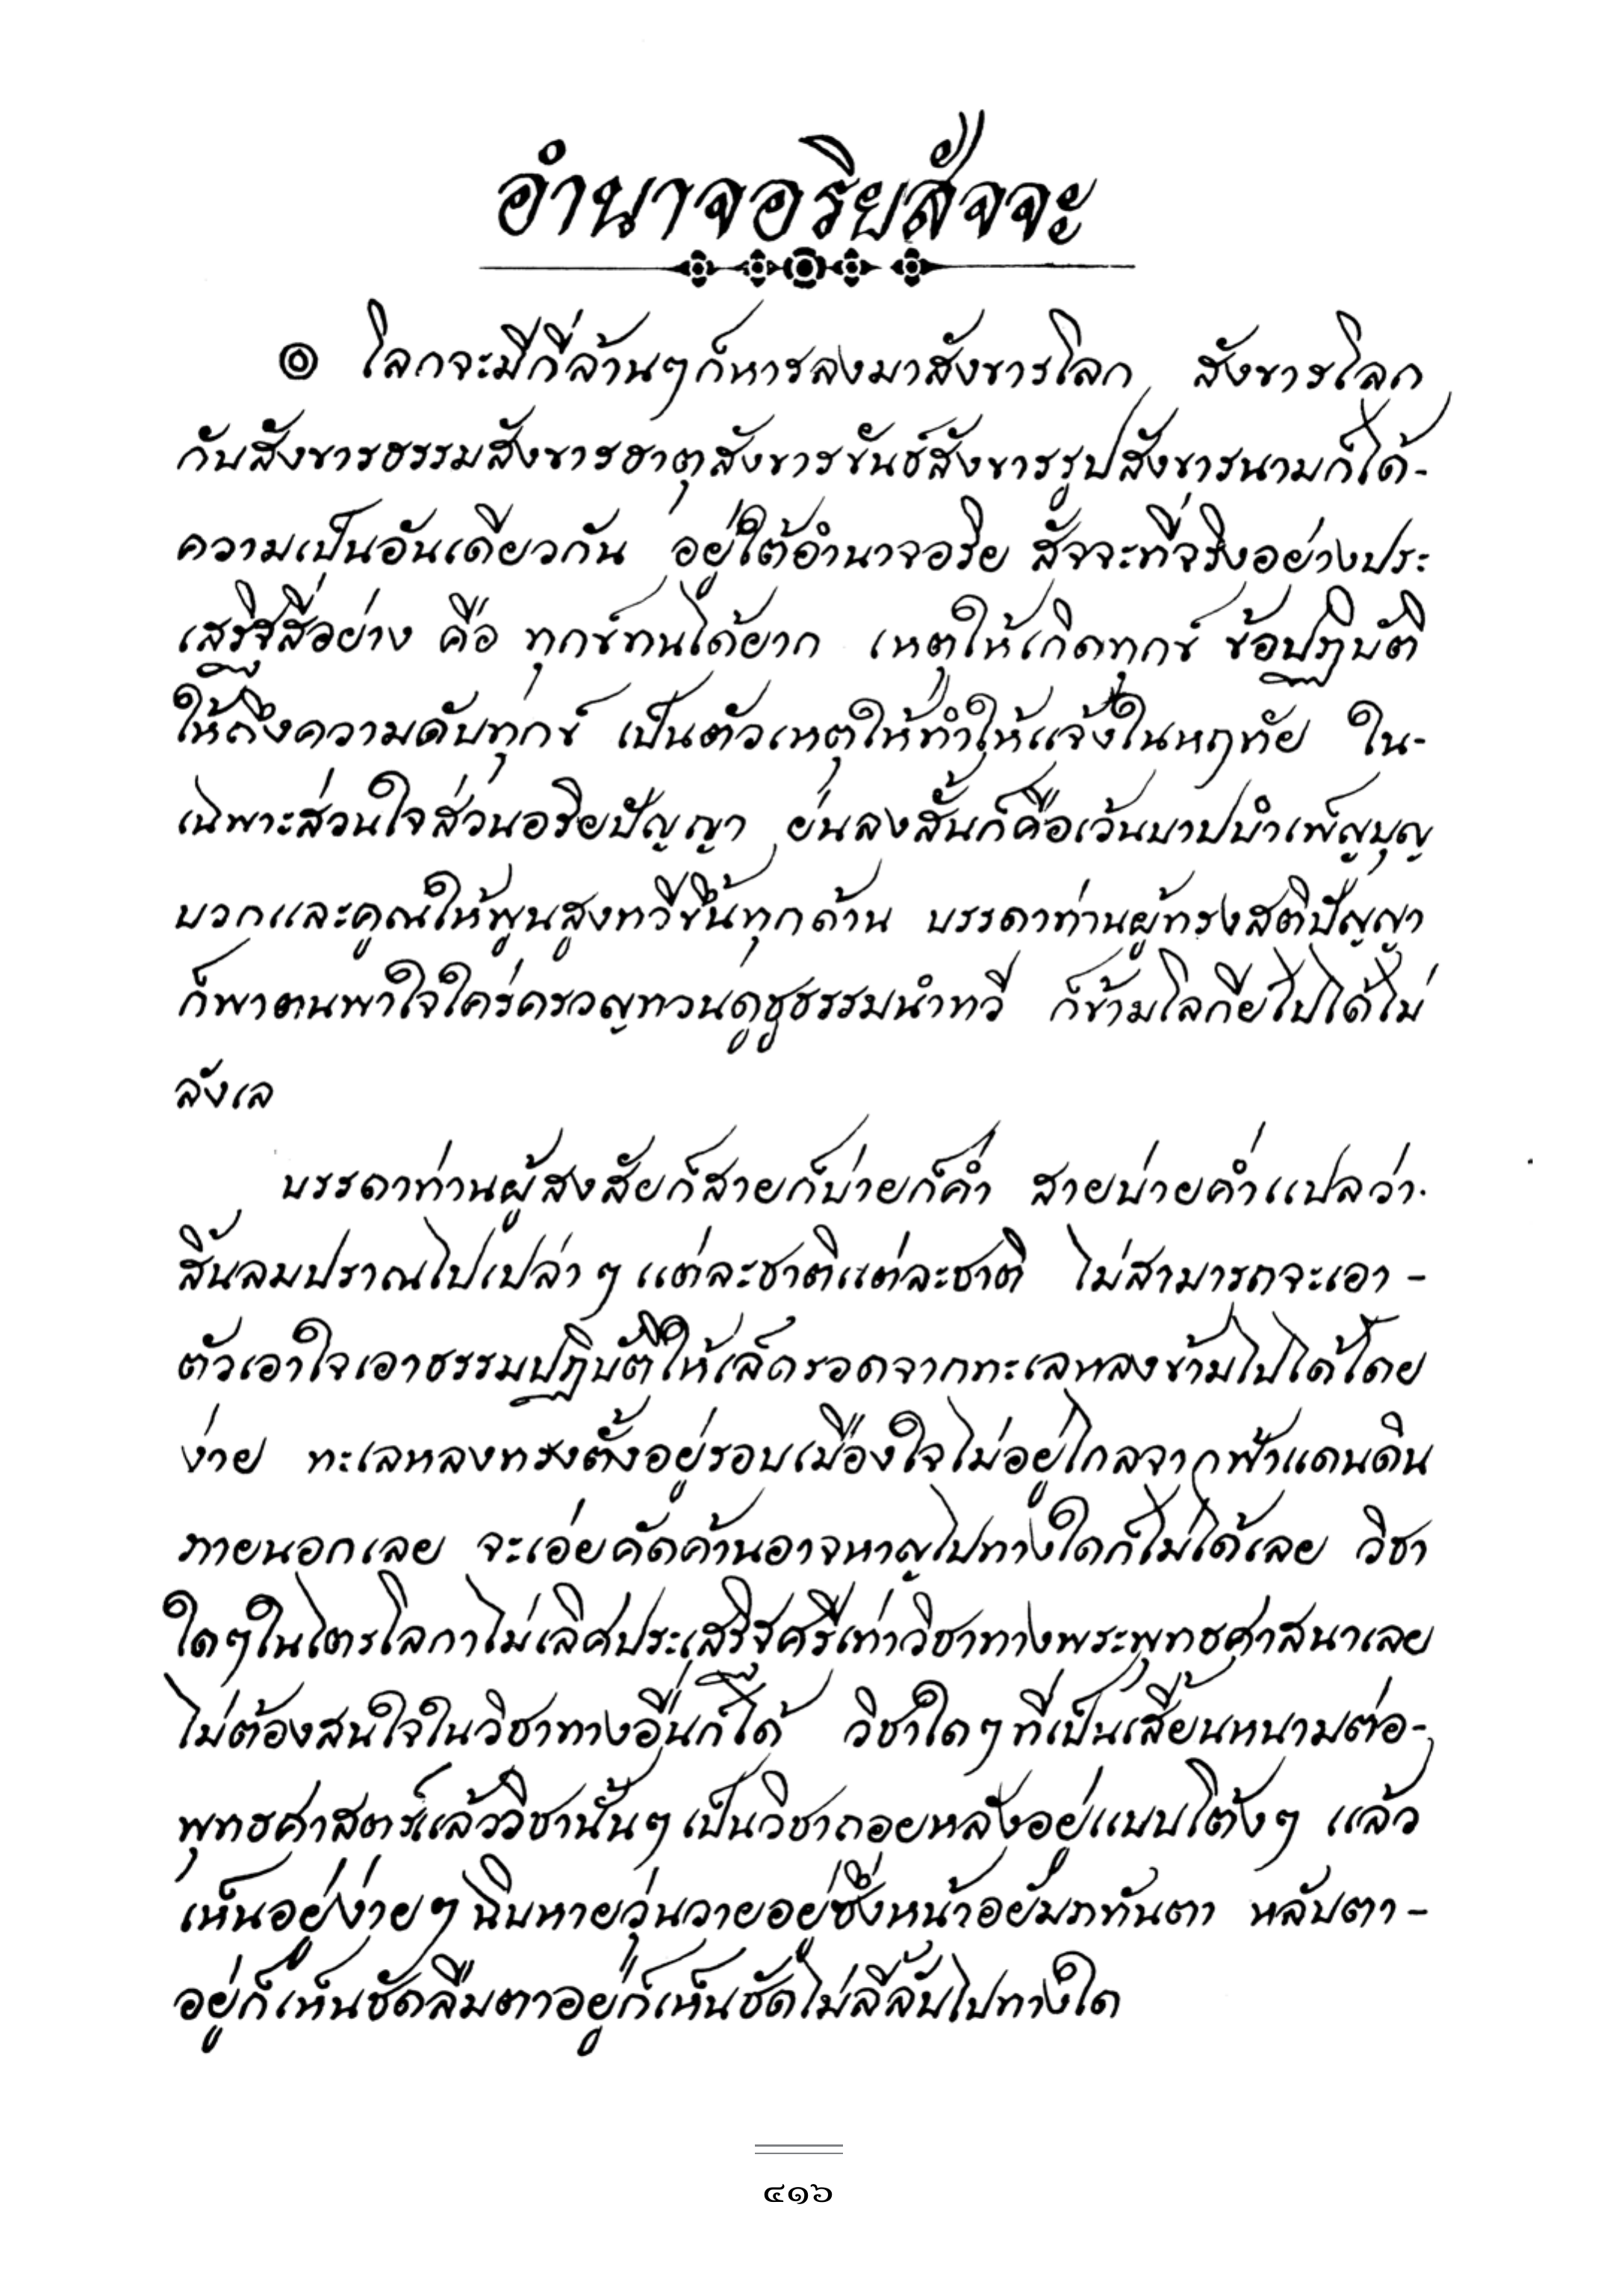 อำนาจอริยสัจจะ
๏ โลกจะมีกี่ล้านๆก็หารลงมาสังขารโลก สังขารโลก
กับสังขารธรรมสังขารธาตุสังขารขันธ์สังขารรูปสังขารนามก็ได้-
ความเป็นอันเดียวกัน อยู่ใต้อำนาจอริย สัจจะที่จริงอย่างประ-
เสริฐสี่อย่าง คือ ทุกข์ทนได้ยาก เหตุให้เกิดทุกข์ ข้อปฏิบัติ
ให้ถึงความดับทุกข์ เป็นตัวเหตุให้ทำให้แจ้งในหฤทัย ใน-
เฉพาะส่วนใจส่วนอริยปัญญา ย่นลงสั้นก็คือเว้นบาปบำเพ็ญบุญ
บวกและคูณให้พูนสูงทวีขึ้นทุกด้าน บรรดาท่านผู้ทรงสติปัญญา
ก็พาตนพาใจใคร่ครวญทวนดูชูธรรมนำทวี ก็ข้ามโลกีย์ไปได้ไม่
ลังเล
บรรดาท่านผู้สงสัยก็สายก็บ่ายก็ค่ำ สายบ่ายค่ำแปลว่า
สิ้นลมปราณไปเปล่าๆ แต่ละชาติแต่ละชาติ ไม่สามารถจะเอา-
ตัวเอาใจเอาธรรมปฏิบัติให้เล็ดรอดจากทะเลหลงข้ามไปได้โดย
ง่าย ทะเลหลงทรงตั้งอยู่รอบเมืองใจไม่อยู่ไกลจากฟ้าแดนดิน
ภายนอกเลย จะเอ่ยคัดค้านอาจหาญไปทางใดก็ไม่ได้เลย วิชา
ใดๆในไตรโลกาไม่เลิศประเสริฐศรีเท่าวิชาทางพระพุทธศาสนาเลย
ไม่ต้องสนใจในวิชาทางอื่นก็ได้ วิชาใดๆที่เป็นเสี้ยนหนามต่อ-
พุทธศาสตร์แล้ววิชานั้นๆ เป็นวิชาถอยหลังอยู่แบบโต้งๆ แล้ว
เห็นอยู่ง่ายๆ ฉิบหายวุ่นวายอยู่ซึ่งหน้าอยัมภทันตา หลับตา-
อยู่ก็เห็นชัดลืมตาอยู่ก็เห็นชัดไม่ลี้ลับไปทางใด
๔๑๖